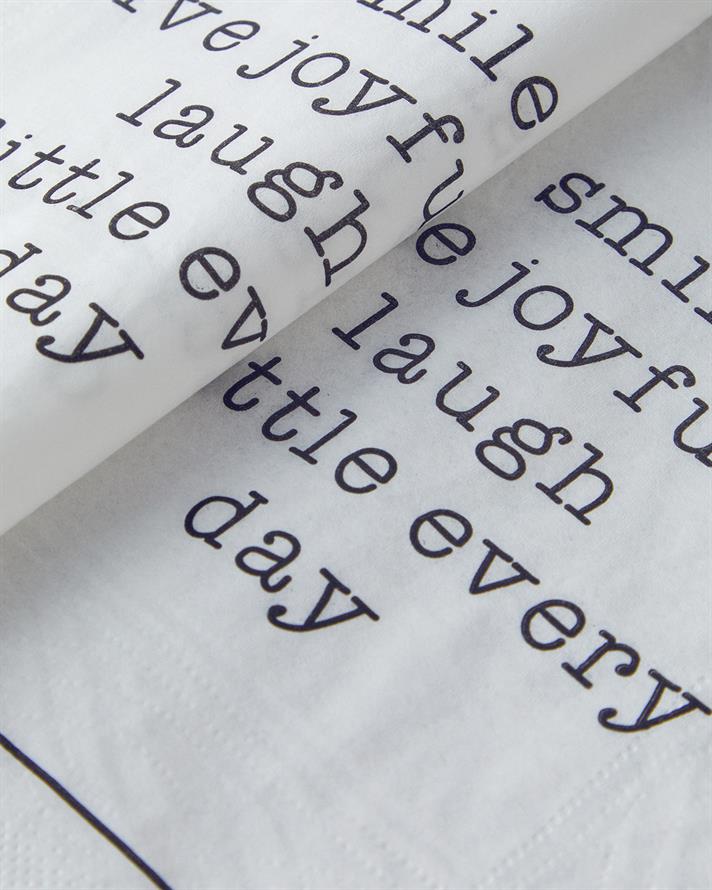 mile
ive joyfu
laugh
ittle ev
day
smi
e joyfu
laugh
ttle every
day